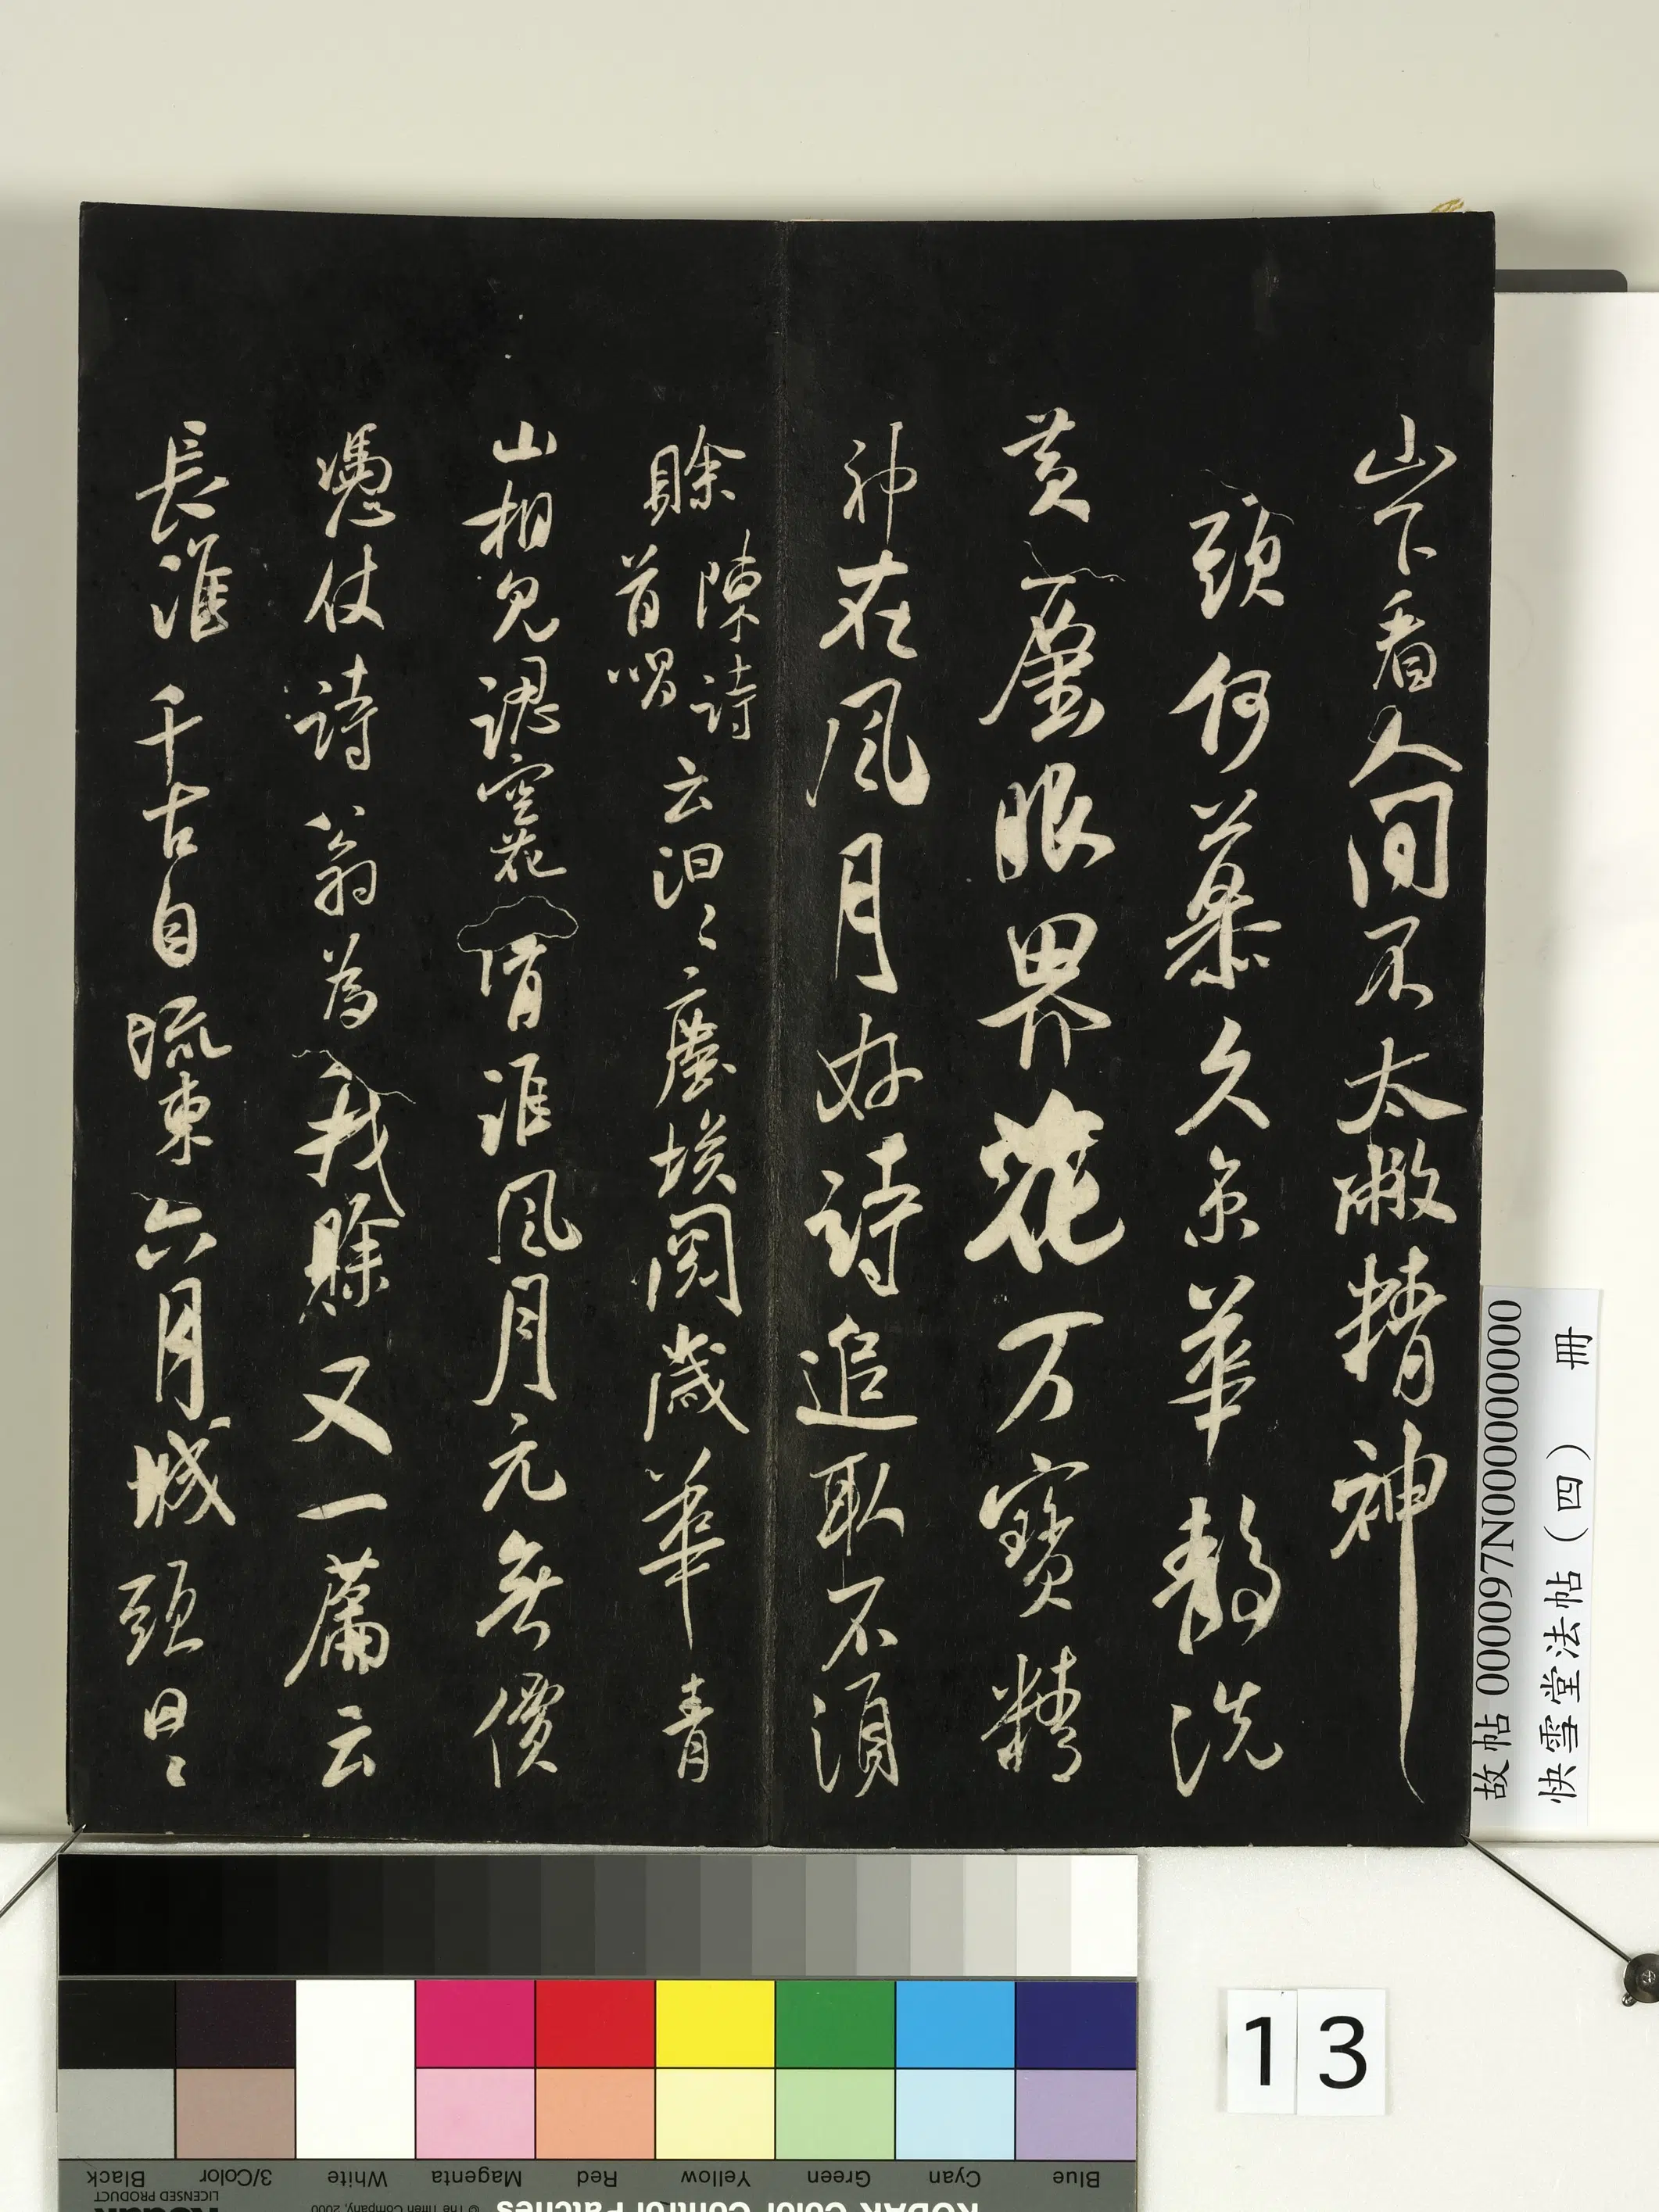 山下看人间不太敝精神
頭何慕久京華静洗
黄塵眼界花万寳精
神在風月好詩追取不須
賖陳詩
首唱云汩〻塵埃閲歲華青
山相見認空花借淮風月元無價
憑仗詩翁為我賖又一篇云
長淮千古自流東六月城頭日〻
故帖 000097N000000000
快雪堂法帖（四） 冊
13
Blue
Cyan
Green
Yellow
Red
Magenta
White
3/Color
Black
KODAK Color Control Patches
© The Tiffen Company, 2000
LICENSED PRODUCT